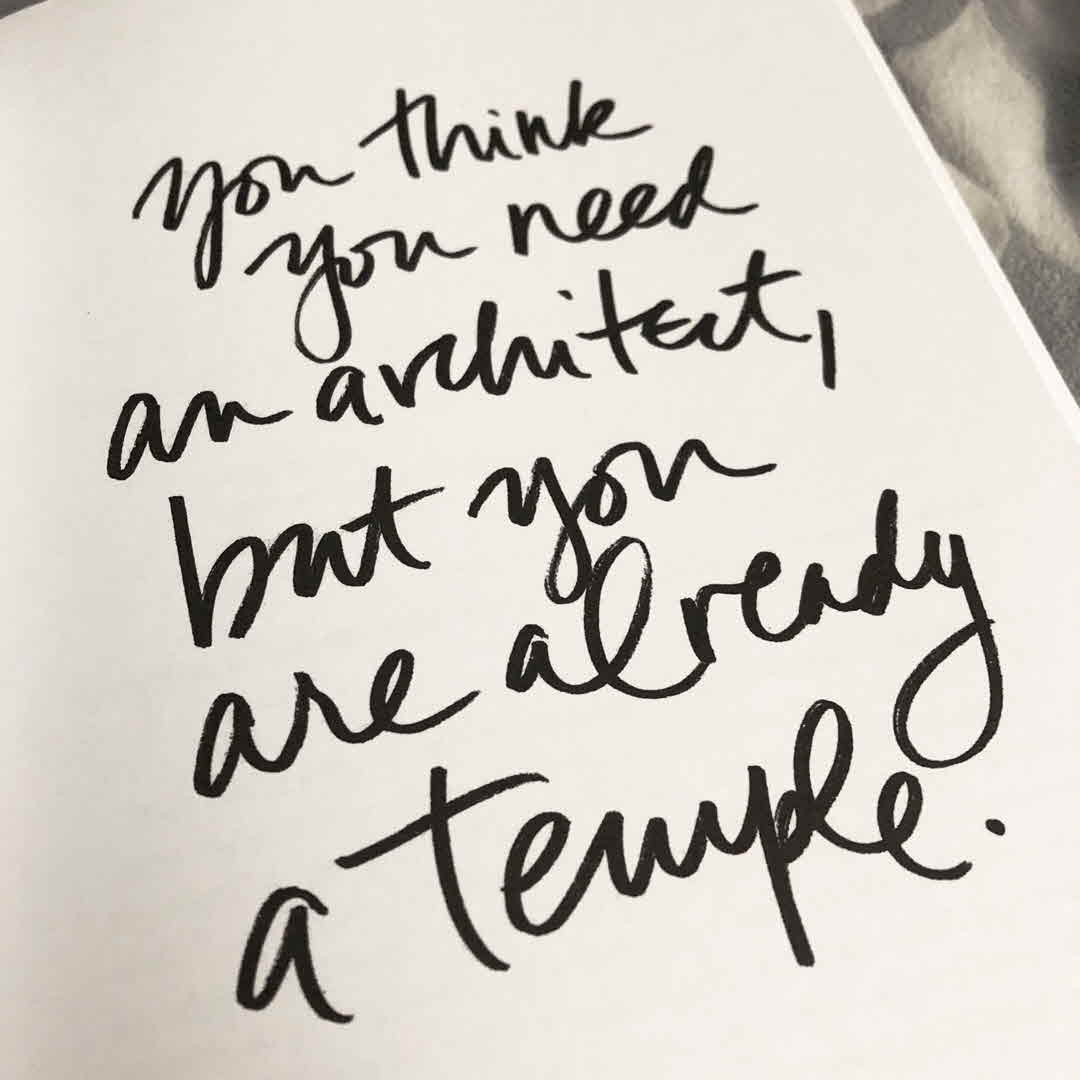 you think
you need
an architect,
but you
are already
a temple.